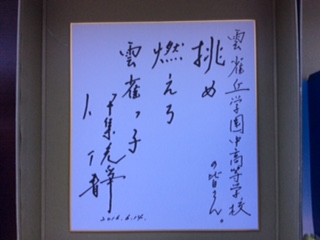 雲雀丘学園中高等学校
の皆さん。
挑め
燃えろ
雲雀っ子
2016.6.14.